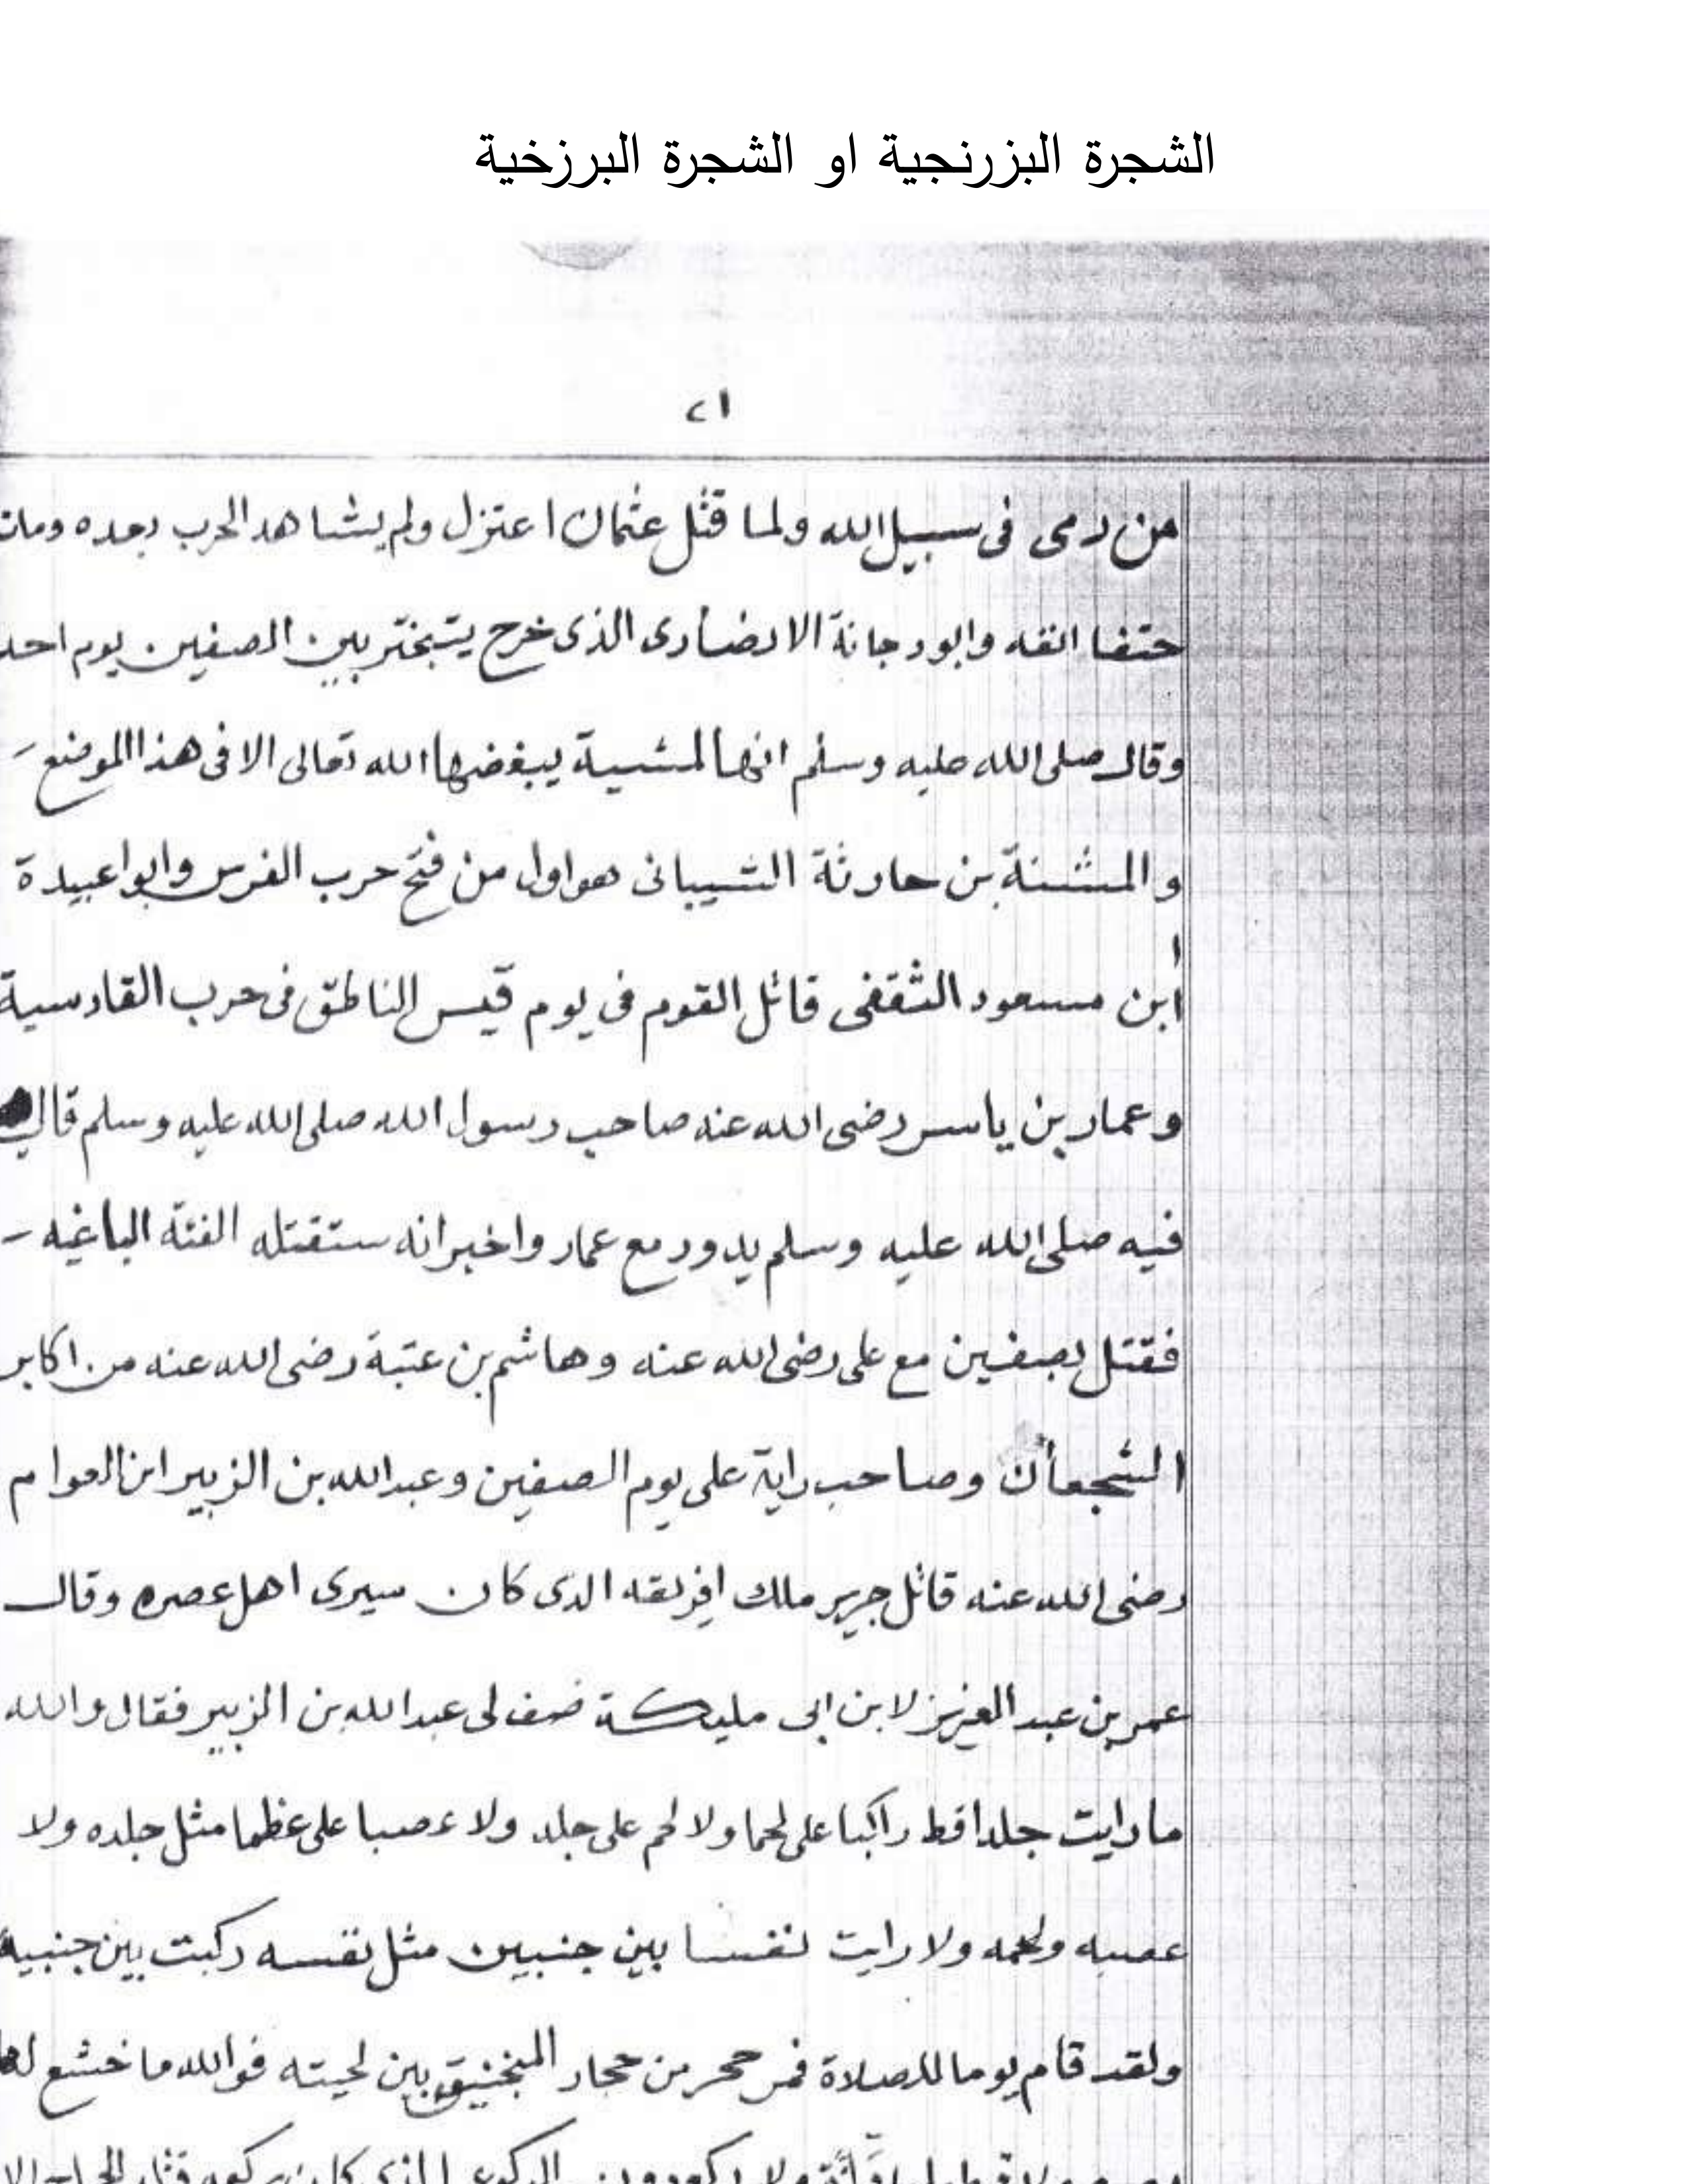 الشجرة البزرنجية او الشجرة البرزخية
٢١
من رمى فى سبيل الله ولما قتل عثمان اعتزل ولم يشاهد الحرب بعده ومات
حتفا انفه وابودجانة الانصارى الذى خرج يتبختر بين الصفين يوم احد
وقال صلى الله عليه وسلم انها لمشية يبغضها الله تعالى الا فى هذا الموضع
والمثنة بن حارثة الشيبانى هو اول من فتح حرب الفرس وابوا عبيدة
ابن مسعود الثقفى قاتل القوم فى يوم قيس الناطق فى حرب القادسية
وعمار بن ياسر رضى الله عنه صاحب رسول الله صلى الله عليه وسلم قال
فيه صلى الله عليه وسلم يدور مع عمار واخبر انه ستقتله الفئة الباغيه
فقتل بصفين مع على رضى الله عنه وهاشم بن عتبة رضى الله عنه من اكابر
الشجعأن وصاحب راية على يوم الصفين وعبدالله بن الزبير ابن العوام
رضى الله عنه قاتل جرير ملك افريقه الذى كان سيرى اهل عصره وقال
عمر بن عبد العزيز لابن ابى مليكة صف لى عبدالله بن الزبير فقال والله
ما رايت جلدا قط راكبا على لحما ولا لحم على جلد ولا عصبا على عظما مثل جلده ولا
عصبه ولحمه ولا رايت نفسا بين جنبين مثل نفسه ركبت بين جنبيه
ولقد قام يوما للصلاة فمر حجر من حجار المنجنيق بين لحيته فوالله ما خشع لها